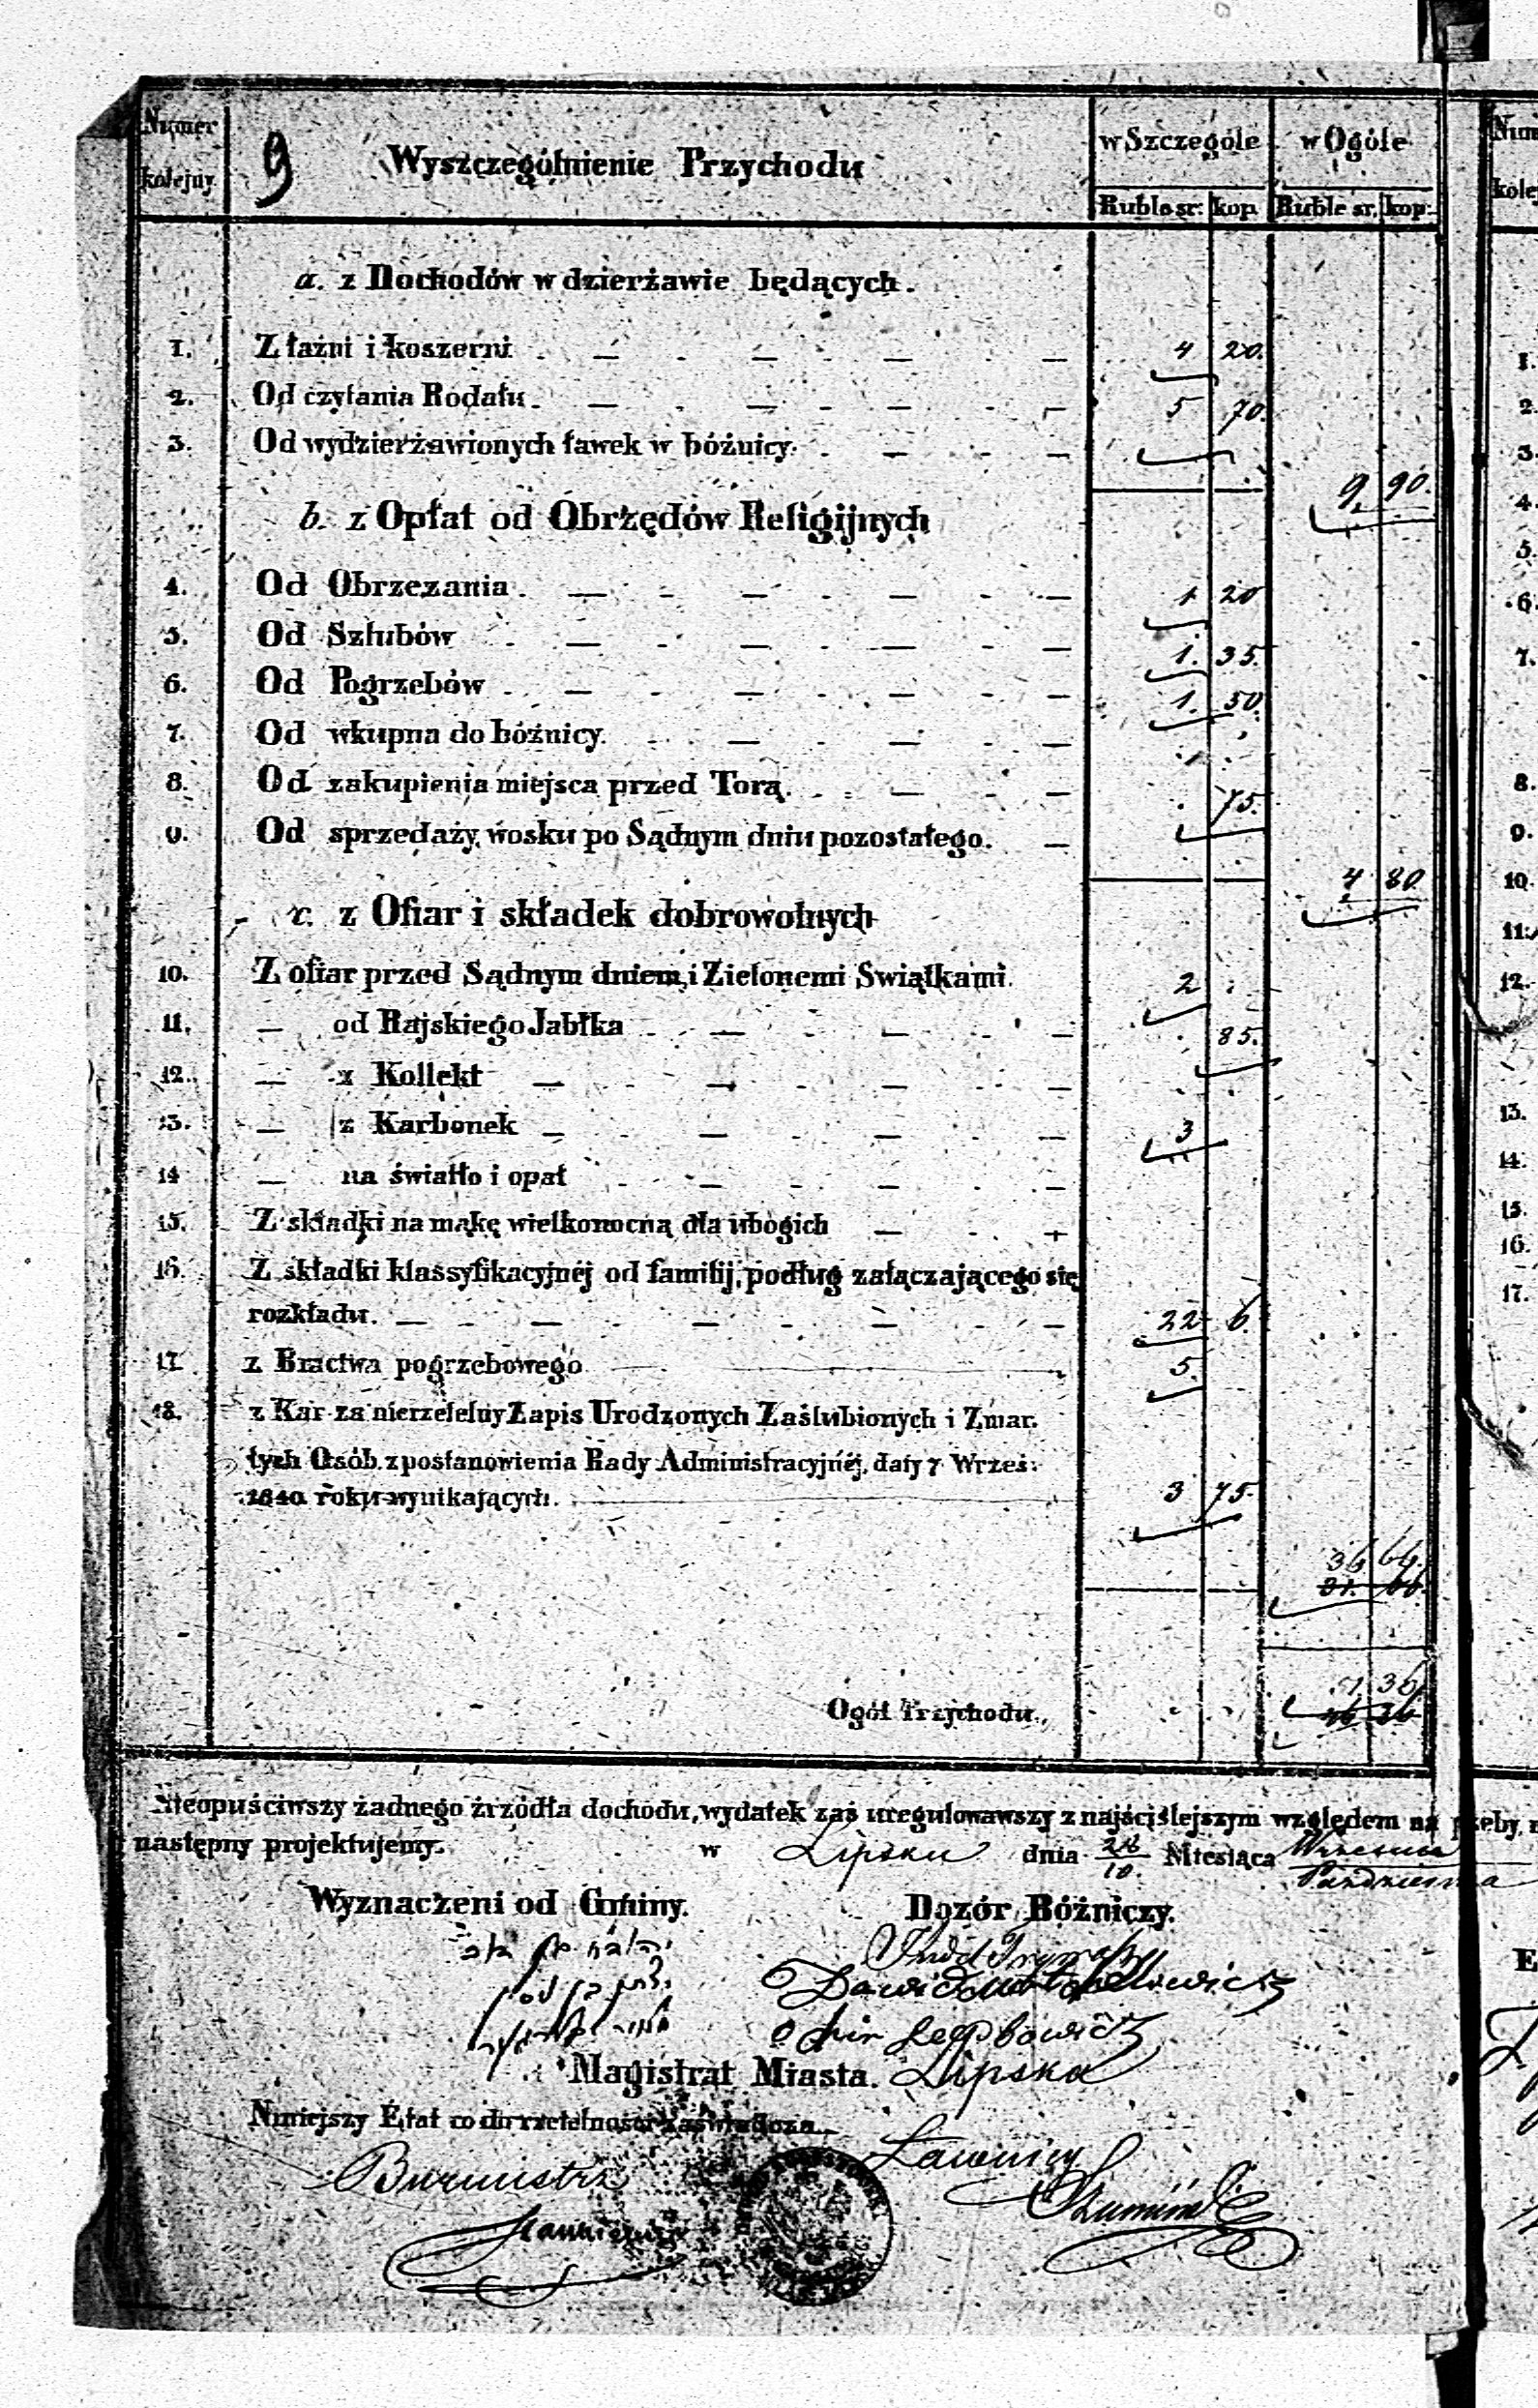 Numer kolejny
9 Wyszczególnienie Przychodu
w Szczególe w Ogóle
Ruble sr. kop. Ruble sr. kop.
a. z Dochodów w dzierżawie będących.
1. Z łaźni i koszerni . — . — . — . — 4 20.
2. Od czytania Rodału. — . — . — . — 5 70.
3. Od wydzierżawionych ławek w bóżnicy. . — . —
9. 90.
b. z Opłat od Obrzędów Religijnych
4. Od Obrzezania. — . — . — . — 1 20
5. Od Szlubów . — . — . — . — 1. 35.
6. Od Pogrzebów . — . — . — . — 1. 50.
7. Od wkupna do bóżnicy. . — . — . —
8. Od zakupienia miejsca przed Torą. . . — . — . 75.
9. Od sprzedaży wosku po Sądnym dniu pozostałego. —
4 80
c. z Ofiar i składek dobrowolnych
10. Z ofiar przed Sądnym dniem, i Zielonemi Swiątkami. 2 .
11. — od Rajskiego Jabłka . — . — . — . 85.
12. — z Kollekt — . — . — . —
13. — z Karbonek — . — . — . — 3
14 — na światło i opał . — . — . —
15. Z składki na mąkę wielkonocną dla ubogich — . —
16. Z składki klassyfikacyjnéj od familij, podług załączającego się
rozkładu. — . — . — . — . — 22 6.
17. z Bractwa pogrzebowego 5.
18. z Kar za nierzetelny Zapis Urodzonych Zaślubionych i Zmar.
łych Osób. z postanowienia Rady Administracyjnéj, daty 7 Wrześ:
1840 roku wynikających. 3 75.
36 66.
Ogół Przychodu. 51 36
46 36
Nieopuściwszy żadnego źrzódła dochodu, wydatek zaś uregulowawszy z najściślejszym względem na
następny projektujemy. w Lipsku dnia 28/10. Miesiąca Września
Października
Wyznaczeni od Gminy. Dozór Bóżniczy.
Magistrat Miasta. Lipska
Niniejszy Etat co do rzetelności zaświadcza
Burmistrz Ławnicy